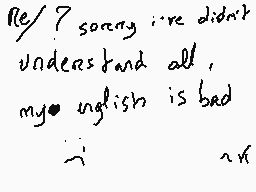 Re/ ? sorerry i've didn't
understand all,
my english is bad